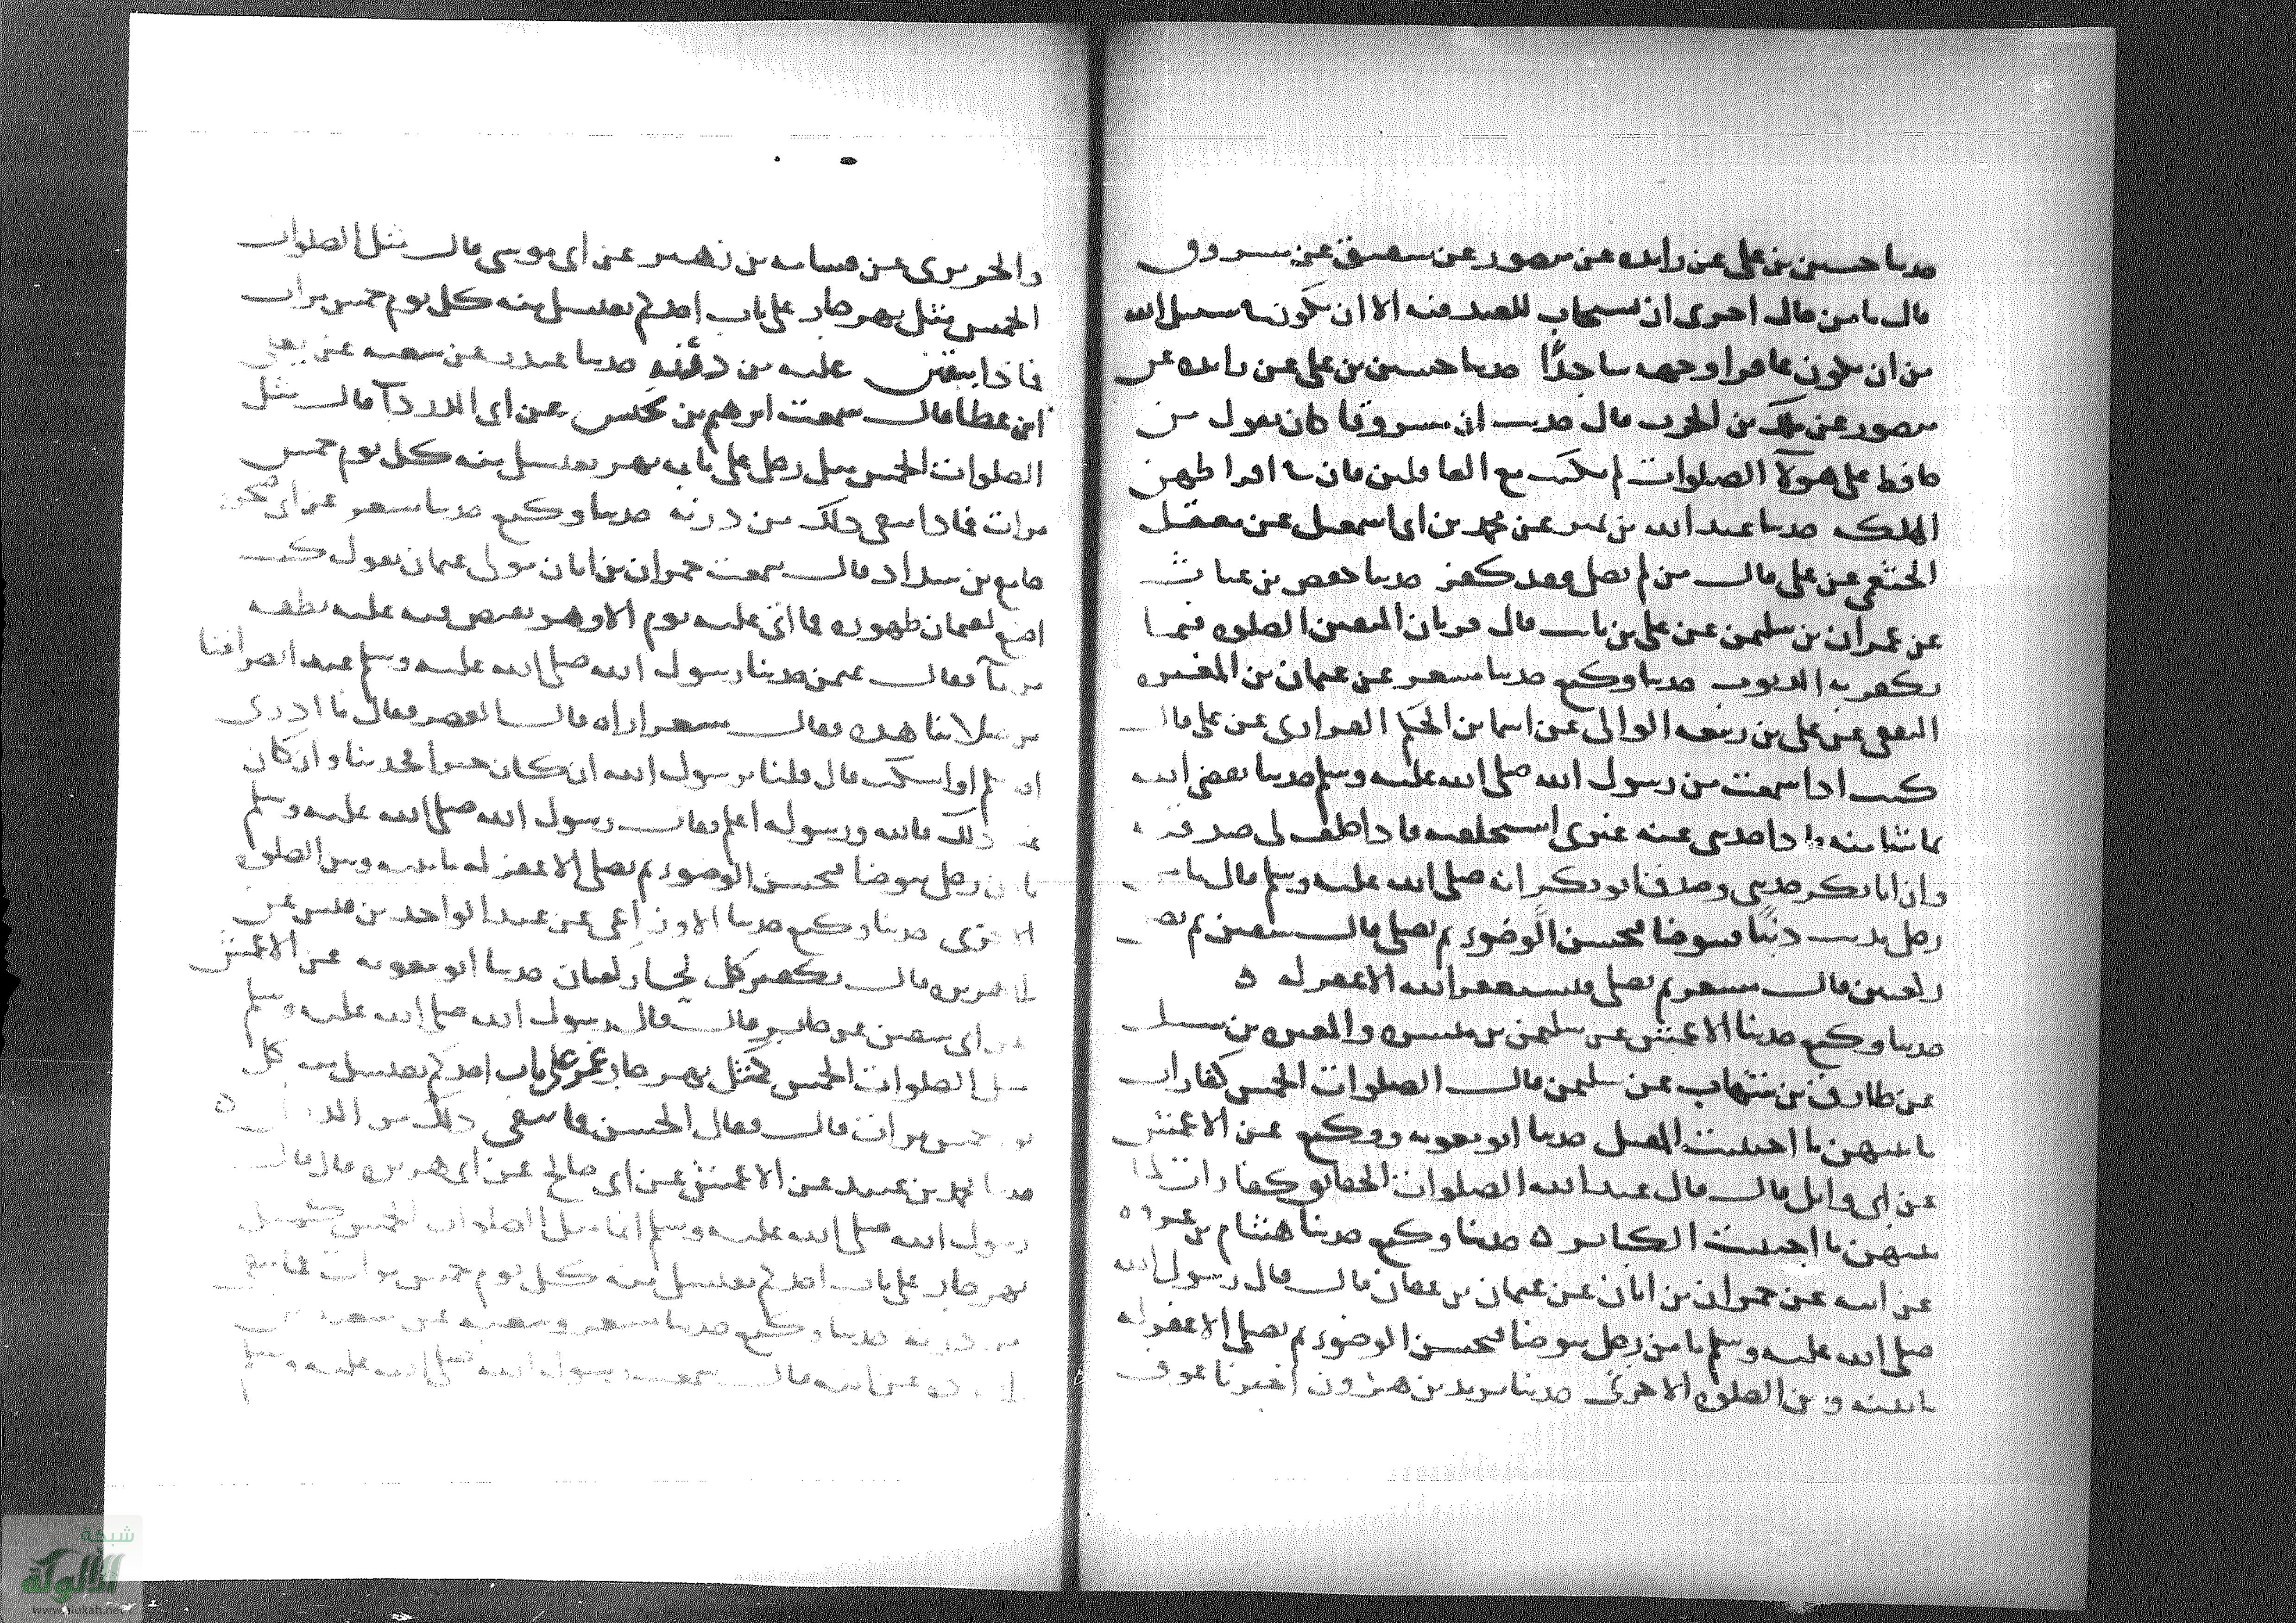 حدثنا حسين بن علي عن زائده عن منصور عن شقيق عن مسروق
قال ما من حال احرى ان يستجاب للعبد فيه الا ان يكون في سبيل الله
من ان يكون عافرا وجهه ساجدًا حدثنا حسين بن علي عن زائده عن
منصور عن ملك بن الحرث قال حدثت ان مسروقا كان يقول من
حافظ على هولآ الصلوات لم يكتب مع الغافلين فان في افراطهن
الهلك حدثنا عبد الله بن نمير عن محمد بن ابي اسمعيل عن معقل
الخثعمي عن علي قال من لم يصل فقد كفر حدثنا حفص بن غياث
عن عمران بن سليمن عن علي بن قال قربان المتقين الصلوه فيما
يكفر به الذنوب حدثنا وكيع حدثنا مسعر عن عثمان بن المغيره
الثقفي عن علي بن ربيعه الوالبي عن اسما بن الحكم الفزاري عن علي قال
كنت اذا سمعت من رسول الله صلى الله عليه وسلم حديثا نفعني الله
بما شا منه واذا حدثني عنه غيري استحلفته فاذا حلف لي صدقته
وان ابا بكر حدثني وصدق ابو بكر انه صلى الله عليه وسلم قال ما من
رجل يذنب ذنبًا فيتوضا فيحسن الوضوء ثم يصلي قال سفين ثم يصلي
ركعتين قال مسعر ثم يصلي فيستغفر الله الا غفر له ه
حدثنا وكيع حدثنا الاعمش عن سليمن بن ميسره والمغيره بن شبيل
عن طارق بن شهاب عن سليمن قال الصلوات الخمس كفارات
ما بينهن ما اجتنبت المقتل حدثنا ابو معويه ووكيع عن الاعمش
عن ابي وايل قال قال عبد الله الصلوات الحقائق كفارات لما
بينهن ما اجتنبت الكبائر ه حدثنا وكيع حدثنا هشام بن عروه
عن ابيه عن حمران بن ابان عن عثمان بن عفان قال قال رسول الله
صلى الله عليه وسلم ما من رجل يتوضا فيحسن الوضوء ثم يصلي الا غفر له
ما بينه وبين الصلوه الاخرى حدثنا يزيد بن هرون اخبرنا عوف
والجريري عن قسامه بن زهير عن ابي موسى قال مثل الصلوات
الخمس مثل نهر جار على باب احدكم يغتسل منه كل يوم خمس مرات
فاذا يبقين عليه من درنه حدثنا غندر عن شعبه عن يعلى
ابن عطا قال سمعت ابرهيم بن عن ابي الدردآ قال مثل
الصلوات الخمس مثل رجل على بابه نهر يغتسل منه كل يوم خمس
مرات فماذا يبقي ذلك من درنه حدثنا وكيع حدثنا مسعر عن ابي صخره
جامع بن شداد قال سمعت حمران بن ابان مولى عثمان يقول كنت
اضع لعثمان طهوره فما اتى عليه يوم الا وهو يفيض فيه عليه نطفه
من مآ فقال عثمن حدثنا رسول الله صلى الله عليه وسلم عند انصرافنا
من صلاتنا هذه فقال مسعر اراه قال العصر فقال ما ادري
احدثكم او اسكت قال قلنا يرسول الله ان كان خيرا فحدثنا وان كان
غير ذلك فالله ورسوله اعلم فقال رسول الله صلى الله عليه وسلم
ما من رجل يتوضا فيحسن الوضوء ثم يصلي الا غفر له ما بينه وبين الصلوه
الاخرى حدثنا وكيع حدثنا الاوزاعي عن عبد الواحد بن قيس عن
ابي هريره قال تكفير كل لحا ركعتان حدثنا ابو معويه عن الاعمش
عن ابي سفين عن جابر قال قال رسول الله صلى الله عليه وسلم
مثل الصلوات الخمس كمثل نهر جار غمر على باب احدكم يغتسل منه كل
يوم خمس مرات قال فقال الحسن فما يبقي ذلك من الدرن ه
حدثنا محمد بن عبيد عن الاعمش عن ابي صالح عن ابي هريره قال قال
رسول الله صلى الله عليه وسلم انما مثل الصلوات الخمس كمثل
نهر جار على باب احدكم يغتسل منه كل يوم خمس مرات فما يبقي
من درنه حدثنا وكيع حدثنا مسعر
عليه وسلم
شبكة
الألوكة
www.alukah.net